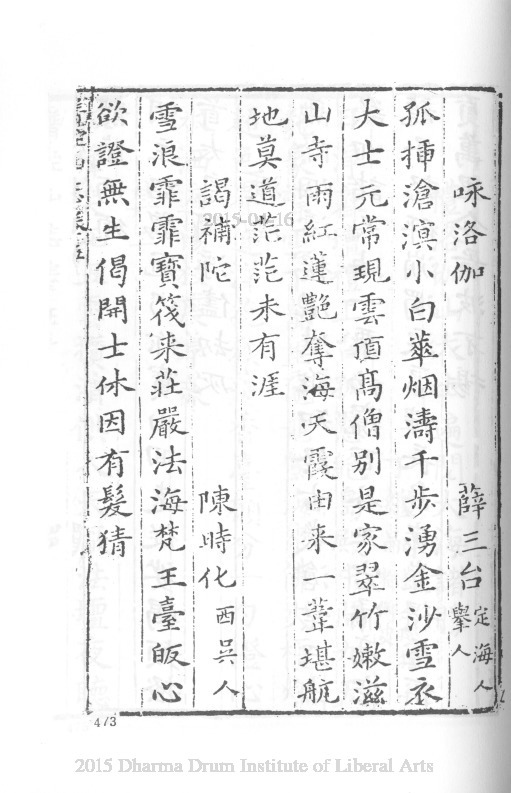 咏洛伽　薛三台定海人舉人
孤揷滄溟小白華烟濤千步湧金沙雪衣
大士元常現雲頂髙僧別是家翠竹嫩滋
山寺雨紅蓮艷奪海天霞由来一葦堪航
地莫道茫茫未有涯
謁補陀　陳時化西吳人
雪浪霏霏寶筏来莊嚴法海梵王臺皈心
欲證無生偈開士休因有髮猜
473
2015 Dharma Drum Institute of Liberal Arts